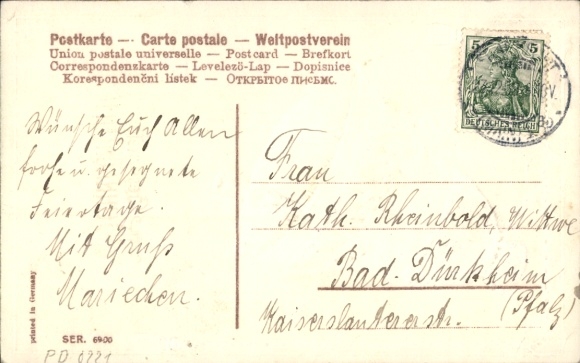 Postkarte — Carte postale — Weltpostverein
Union postale universelle — Postcard — Brefkort
Correspondenzkarte — Levelezö-Lap — Dopisnice
Korespondenční lístek — Открытое письмо.
5 5
DEUTSCHES REICH
Wünsche Euch Allen
frohe u. gesegnete
Feiertage.
Mit Gruß
Mariechen.
Frau
Kath. Rheinbold, Wittwe
Bad-Dürkheim
(Pfalz)
Kaiserslautererstr.
printed in Germany
SER. 6900
PD 0771